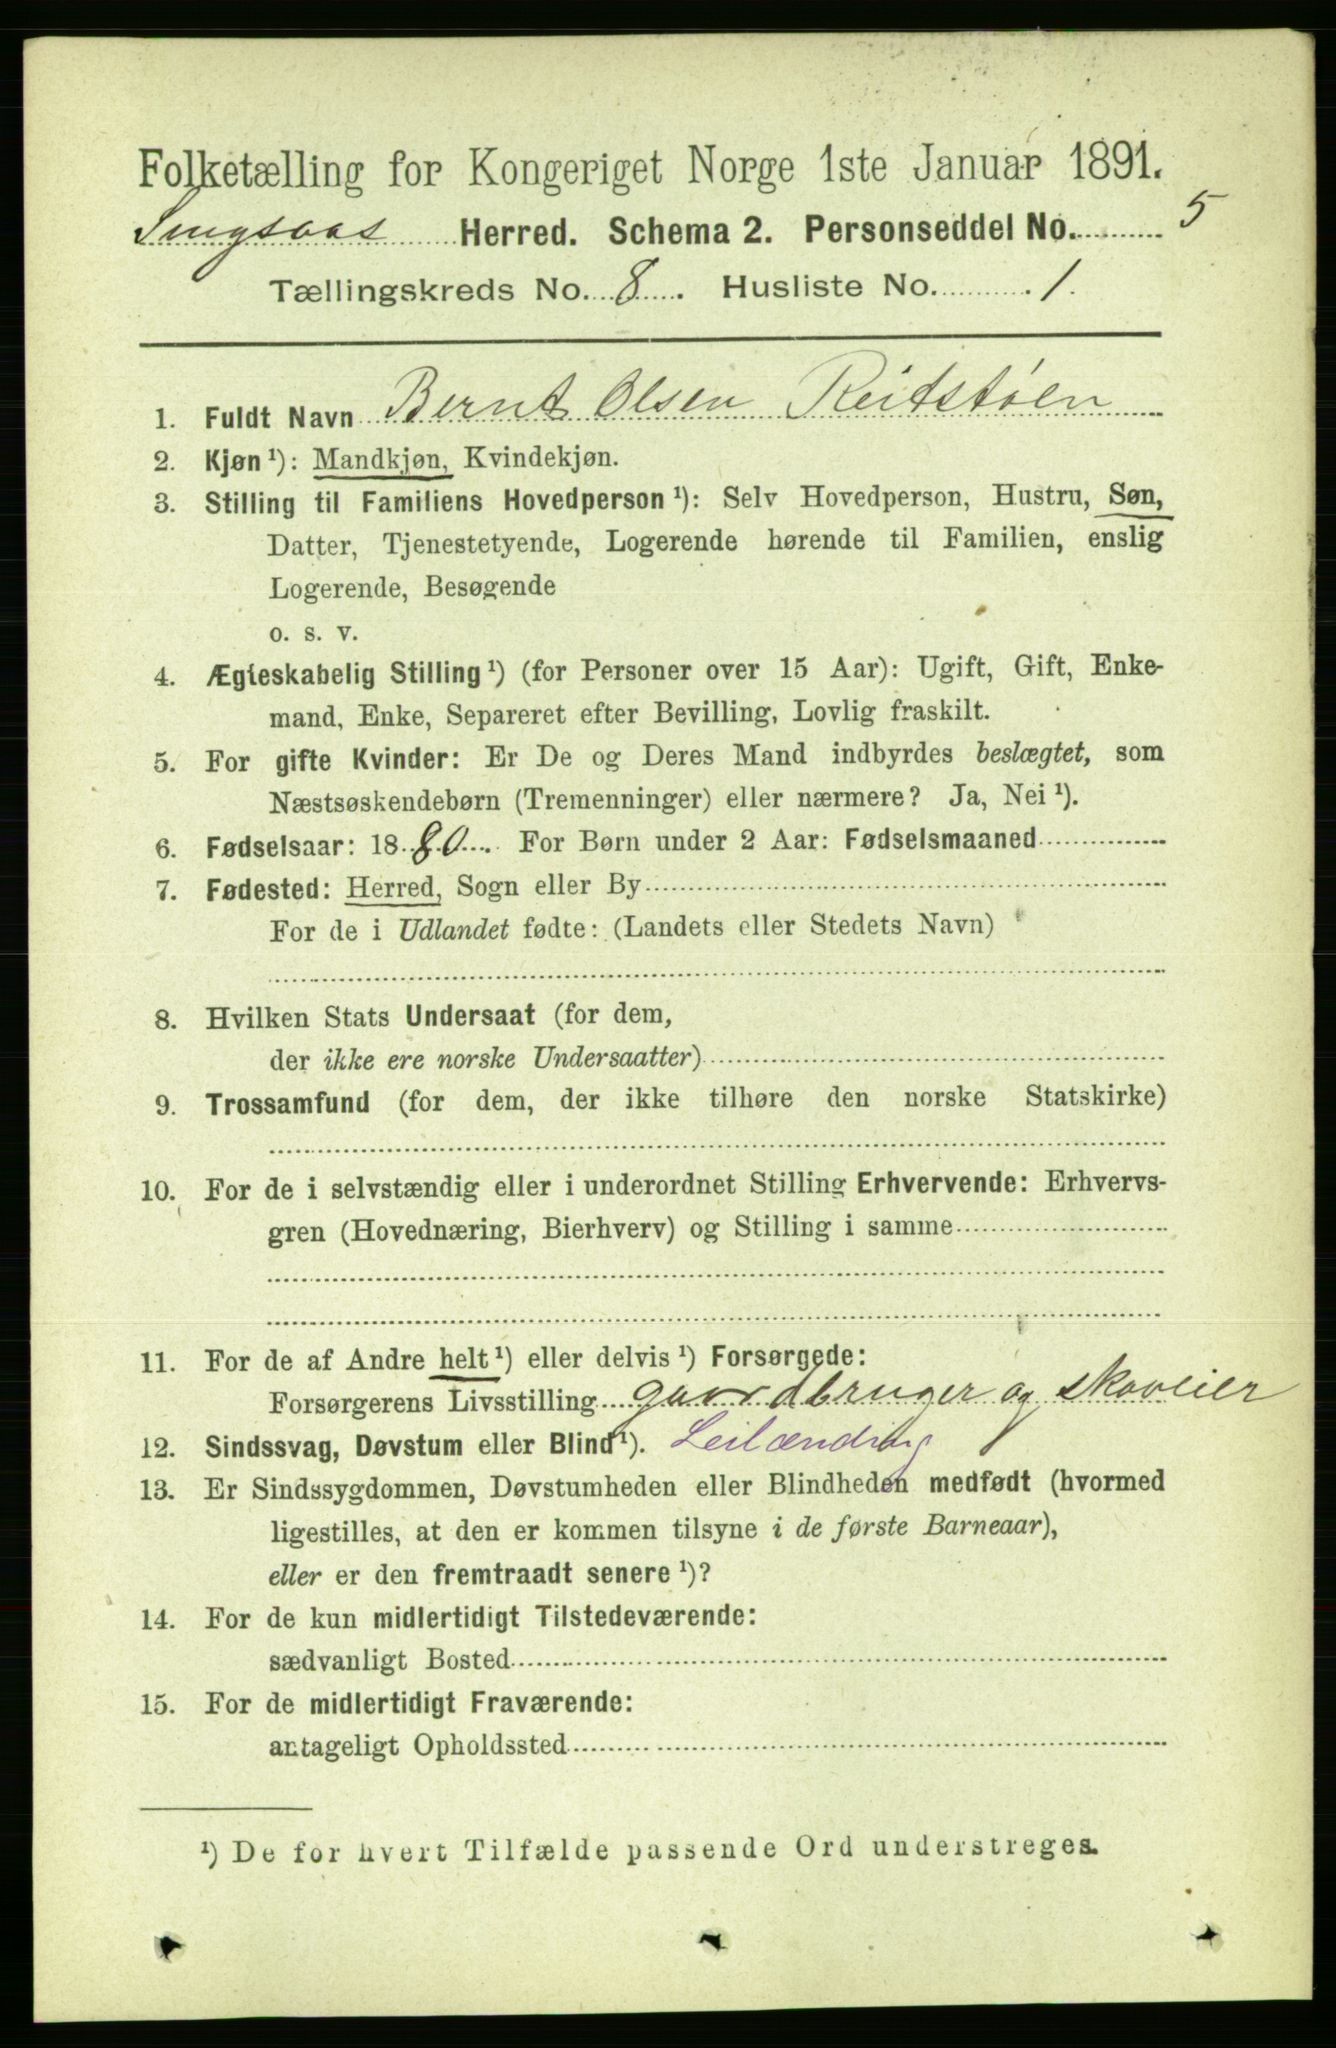 Folketælling for Kongeriget Norge 1ste Januar 1891.
Singsaas Herred. Schema 2. Personseddel No. 5
Tællingskreds No. 8. Husliste No. 1.
1. Fuldt Navn Bernt Olsen Reitstøen
2. Kjøn ¹): Mandkjøn, Kvindekjøn.
3. Stilling til Familiens Hovedperson ¹): Selv Hovedperson, Hustru, Søn,
Datter, Tjenestetyende, Logerende hørende til Familien, enslig
Logerende, Besøgende
o. s. v.
4. Ægteskabelig Stilling ¹) (for Personer over 15 Aar): Ugift, Gift, Enke-
mand, Enke, Separeret efter Bevilling, Lovlig fraskilt.
5. For gifte Kvinder: Er De og Deres Mand indbyrdes beslægtet, som
Næstsøskendebørn (Tremenninger) eller nærmere? Ja, Nei ¹).
6. Fødselsaar: 1880. For Børn under 2 Aar: Fødselsmaaned
7. Fødested: Herred, Sogn eller By
For de i Udlandet fødte: (Landets eller Stedets Navn)
8. Hvilken Stats Undersaat (for dem,
der ikke ere norske Undersaatter)
9. Trossamfund (for dem, der ikke tilhøre den norske Statskirke)
10. For de i selvstændig eller i underordnet Stilling Erhvervende: Erhvervs-
gren (Hovednæring, Bierhverv) og Stilling i samme
11. For de af Andre helt ¹) eller delvis ¹) Forsørgede:
Forsørgerens Livsstilling gaardbruger og skoveier
12. Sindssvag, Døvstum eller Blind ¹). Leilænding
13. Er Sindssygdommen, Døvstumheden eller Blindheden medfødt (hvormed
ligestilles, at den er kommen tilsyne i de første Barneaar),
eller er den fremtraadt senere ¹)?
14. For de kun midlertidigt Tilstedeværende:
sædvanligt Bosted
15. For de midlertidigt Fraværende:
antageligt Opholdssted
¹) De for hvert Tilfælde passende Ord understreges.